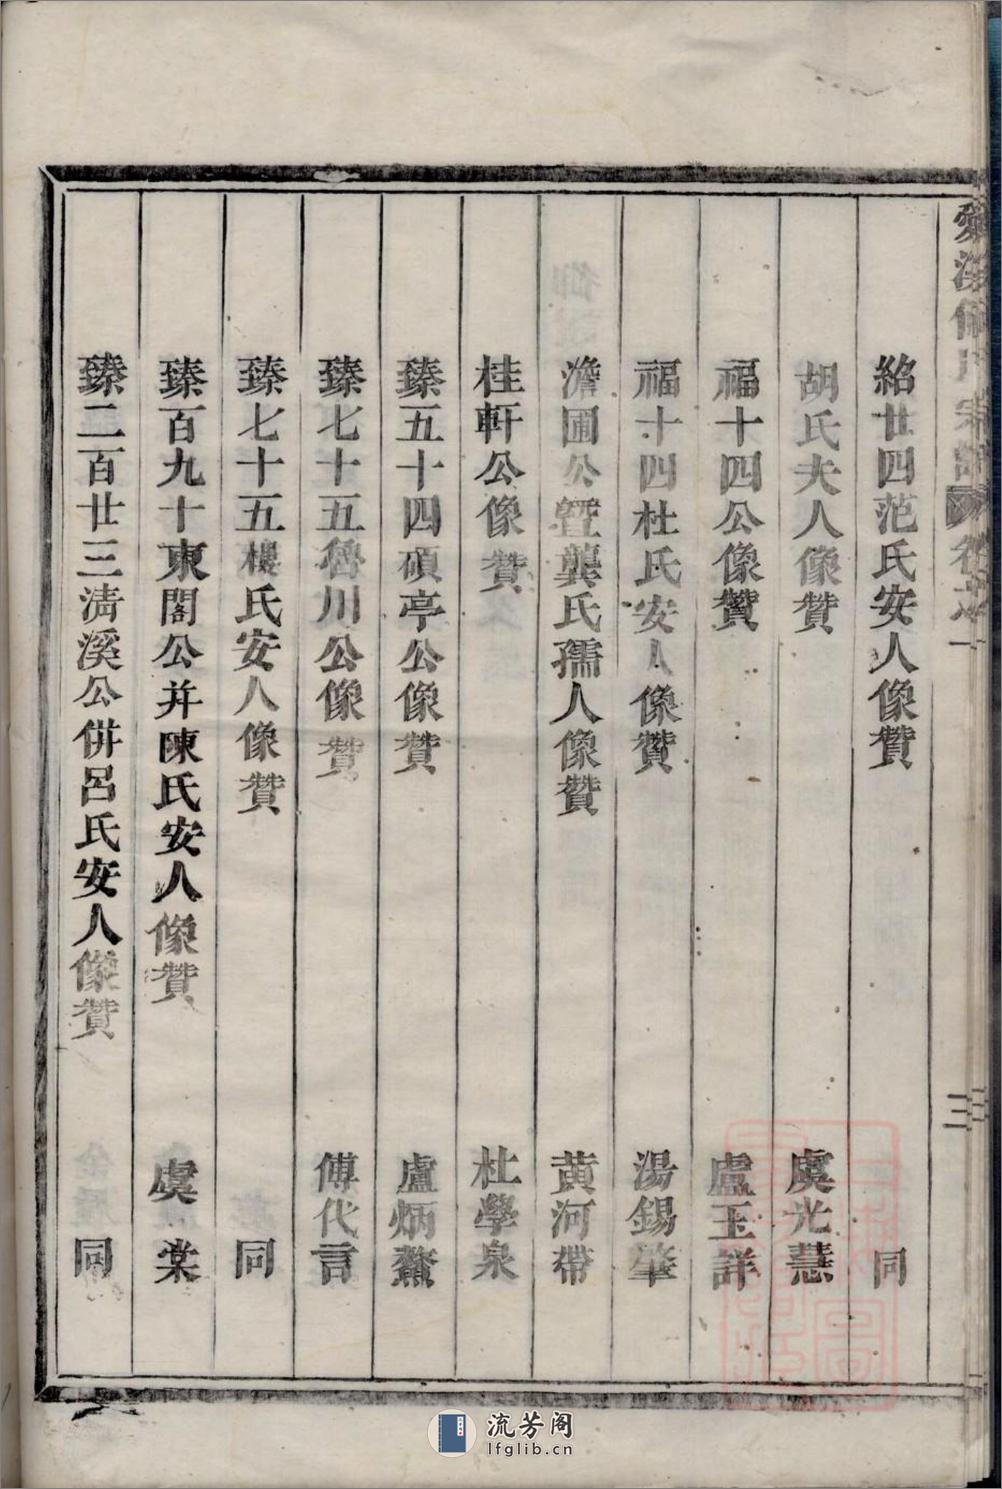 紹廿四范氏安人像贊 同
胡氏夫人像贊 虞光慧
福十四公像贊 盧玉詳
福十四杜氏安人像贊 湯錫肇
澹圃公暨龔氏孺人像贊 黄河帶
桂軒公像贊 杜學泉
臻五十四碩亭公像贊 盧炳
臻七十五魯川公像贊 傅代言
臻七十五樓氏安人像贊 同
臻百九十東閣公并陳氏安人像贊 虞棠
臻二百廿三清溪公併呂氏安人像贊 同
流芳阁
lfglib.cn